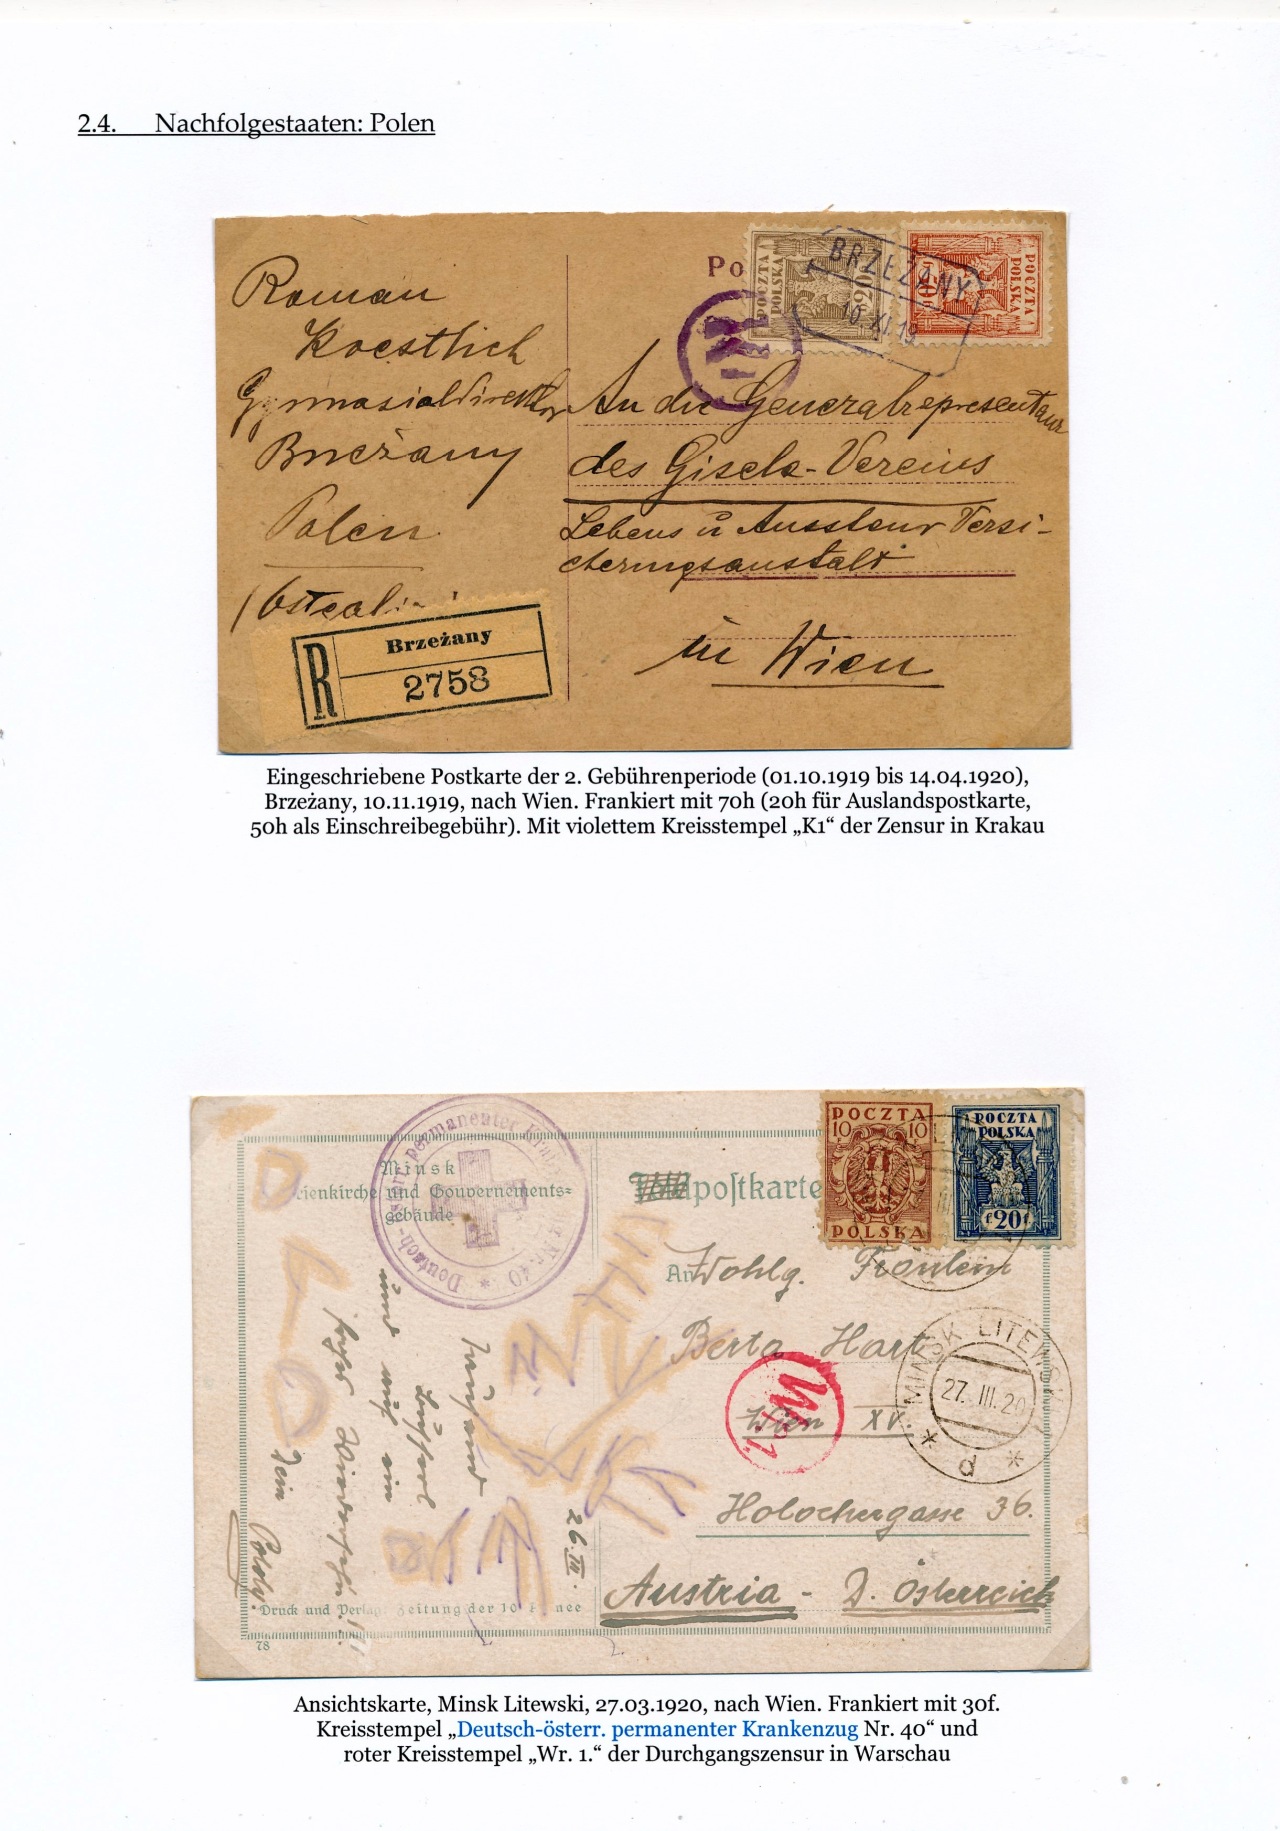 2.4. Nachfolgestaaten: Polen
Po
POCZTA POLSKA
20
BRZEŻANY
10.XI.19
POCZTA POLSKA
50
Roman
Koestlich
Gymnasialdirektor
Brzeżany
Polen
An die Generalrepresentanz
des Gisela-Vereins
Lebens u Aussteur Versi-
cherungsanstalt
in Wien
R
Brzeżany
2758
Eingeschriebene Postkarte der 2. Gebührenperiode (01.10.1919 bis 14.04.1920),
Brzeżany, 10.11.1919, nach Wien. Frankiert mit 70h (20h für Auslandspostkarte,
50h als Einschreibegebühr). Mit violettem Kreisstempel „K1“ der Zensur in Krakau
Deutsch-österr. permanenter Krankenzug Nr. 40 *
Minsk
Marienkirche und Gouvernements-
gebäude
Feldpostkarte
POCZTA
10 10
POLSKA
POCZTA
POLSKA
f.20f.
An Wohlg. Fräulein
Berta Hart
Wien XV.
Holochergasse 36.
Austria - D. Österreich
Wr. 1.
MINSK LITEWSKI
27.III.20
* d *
26.III.
und auf ein
Dein
Druck und Verlag: Zeitung der 10. Armee
78
Ansichtskarte, Minsk Litewski, 27.03.1920, nach Wien. Frankiert mit 30f.
Kreisstempel „Deutsch-österr. permanenter Krankenzug Nr. 40“ und
roter Kreisstempel „Wr. 1.“ der Durchgangszensur in Warschau